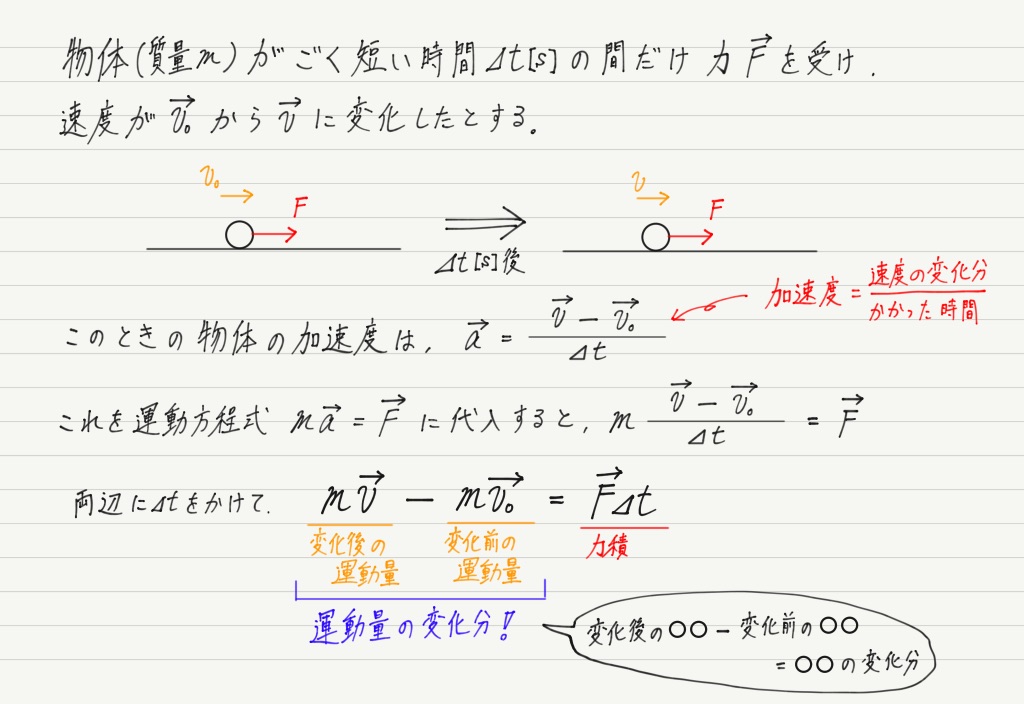 物体(質量m)がごく短い時間Δt[s]の間だけ力F⃗を受け.
速度がv⃗₀からv⃗に変化したとする。
v₀
F
v
F
Δt[s]後
加速度 = 速度の変化分 / かかった時間
このときの物体の加速度は, a⃗ = (v⃗ − v⃗₀) / Δt
これを運動方程式 ma⃗ = F⃗ に代入すると, m (v⃗ − v⃗₀) / Δt = F⃗
両辺にΔtをかけて. mv⃗ − mv⃗₀ = F⃗Δt
変化後の運動量
変化前の運動量
力積
運動量の変化分!!
変化後の○○ − 変化前の○○
= ○○の変化分